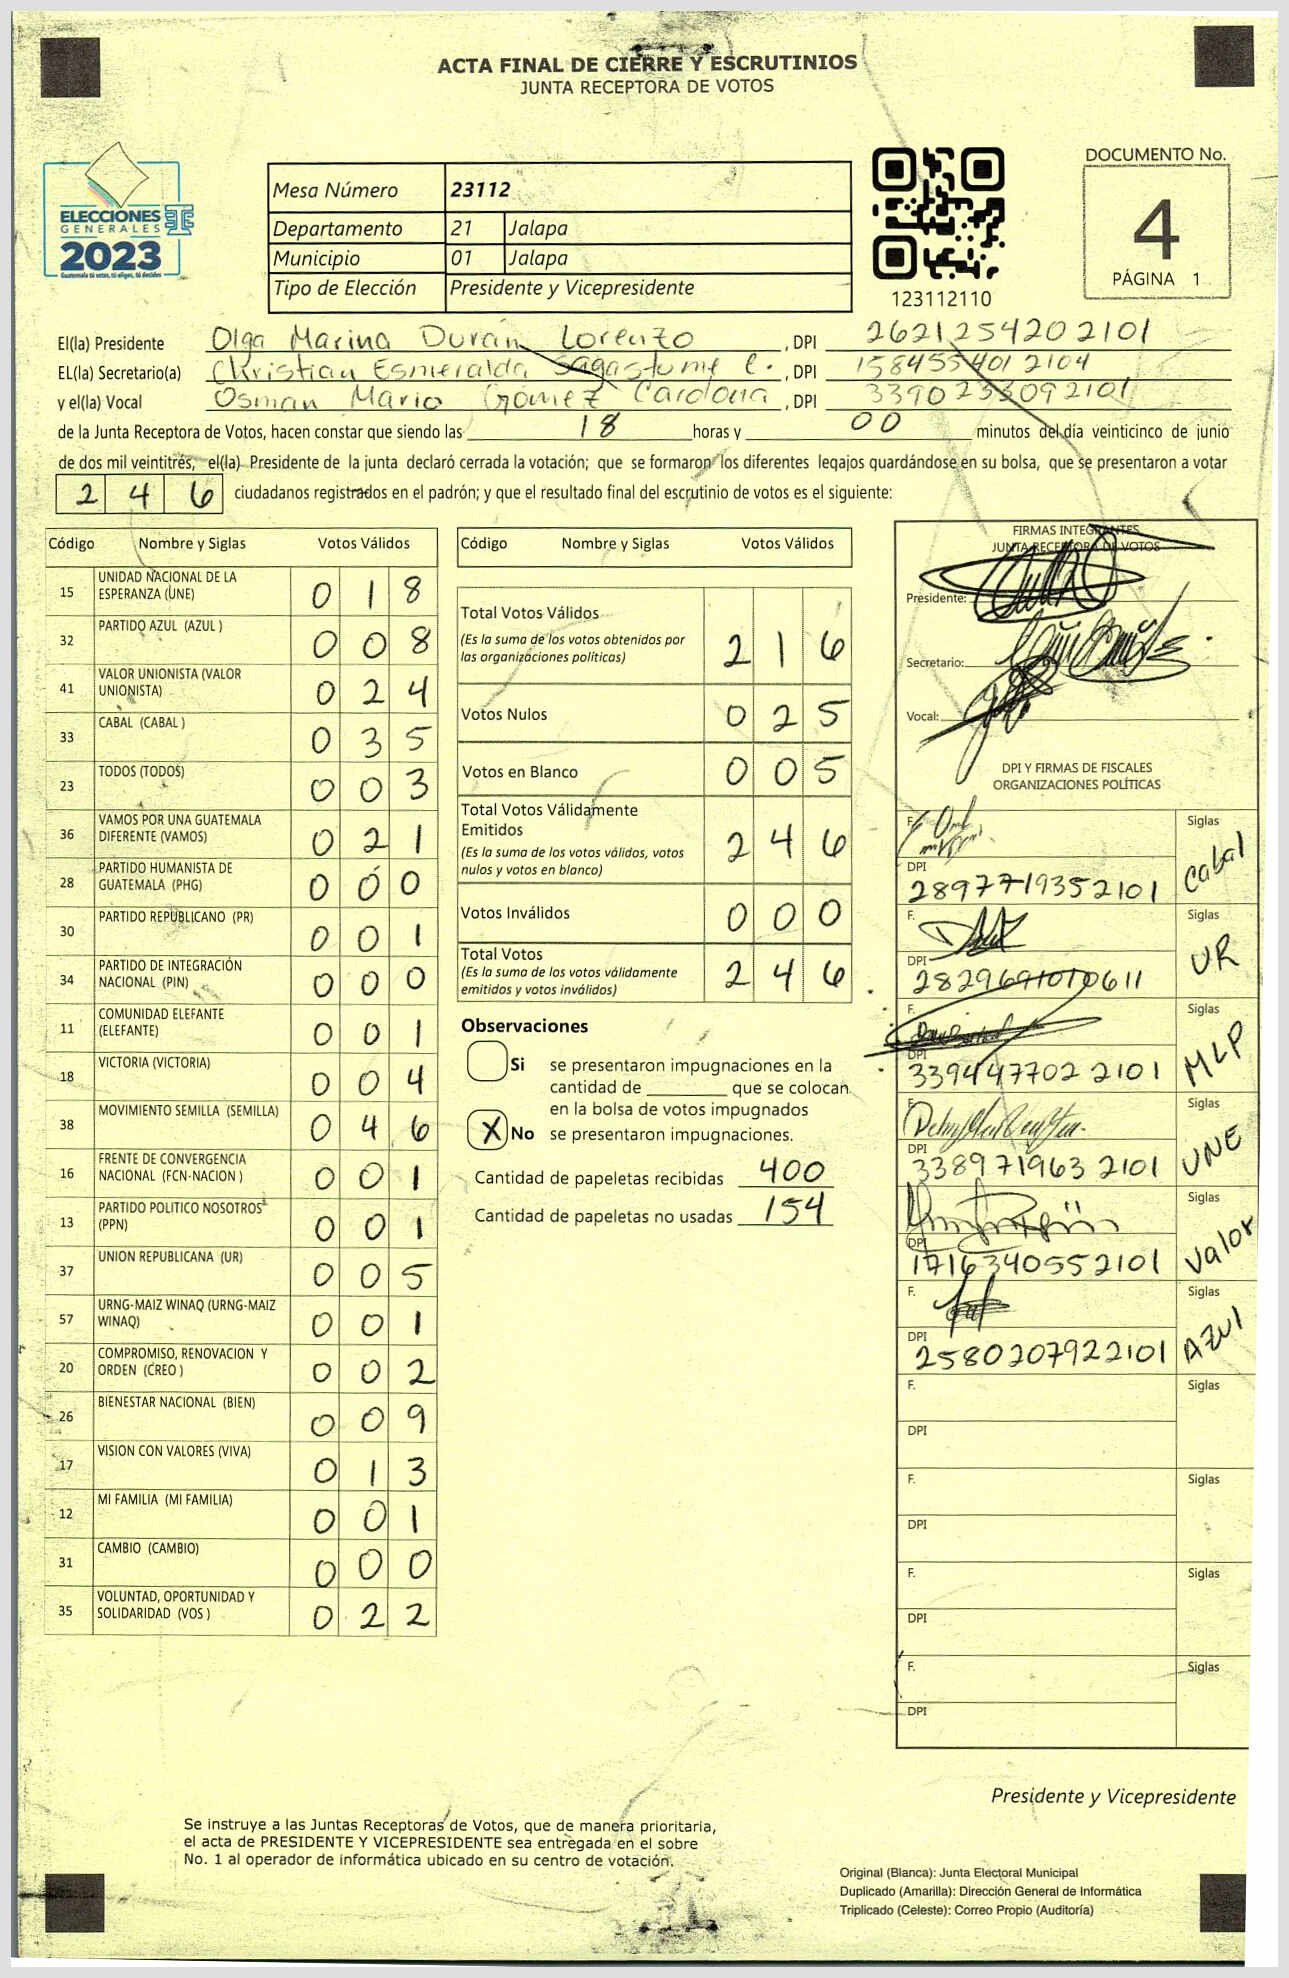 ACTA FINAL DE CIERRE Y ESCRUTINIOS
JUNTA RECEPTORA DE VOTOS
ELECCIONES
GENERALES
2023
Guatemala tú votas, tú eliges, tú decides
Mesa Número 23112
Departamento 21 Jalapa
Municipio 01 Jalapa
Tipo de Elección Presidente y Vicepresidente
123112110
DOCUMENTO No.
4
PÁGINA 1
El(la) Presidente Olga Marina Durán Lorenzo , DPI 2621254202101
EL(la) Secretario(a) Christian Esmeralda Sagastume C. , DPI 1584554012104
y el(la) Vocal Osman Mario Gómez Cardona , DPI 3390233092101
de la Junta Receptora de Votos, hacen constar que siendo las 18 horas y 00 minutos del día veinticinco de junio
de dos mil veintitrés, el(la) Presidente de la junta declaró cerrada la votación; que se formaron los diferentes legajos guardándose en su bolsa, que se presentaron a votar
2 4 6 ciudadanos registrados en el padrón; y que el resultado final del escrutinio de votos es el siguiente:
Código Nombre y Siglas Votos Válidos
15 UNIDAD NACIONAL DE LA ESPERANZA (UNE) 0 1 8
32 PARTIDO AZUL (AZUL ) 0 0 8
41 VALOR UNIONISTA (VALOR UNIONISTA) 0 2 4
33 CABAL (CABAL ) 0 3 5
23 TODOS (TODOS) 0 0 3
36 VAMOS POR UNA GUATEMALA DIFERENTE (VAMOS) 0 2 1
28 PARTIDO HUMANISTA DE GUATEMALA (PHG) 0 0 0
30 PARTIDO REPUBLICANO (PR) 0 0 1
34 PARTIDO DE INTEGRACIÓN NACIONAL (PIN) 0 0 0
11 COMUNIDAD ELEFANTE (ELEFANTE) 0 0 1
18 VICTORIA (VICTORIA) 0 0 4
38 MOVIMIENTO SEMILLA (SEMILLA) 0 4 6
16 FRENTE DE CONVERGENCIA NACIONAL (FCN-NACION ) 0 0 1
13 PARTIDO POLITICO NOSOTROS (PPN) 0 0 1
37 UNION REPUBLICANA (UR) 0 0 5
57 URNG-MAIZ WINAQ (URNG-MAIZ WINAQ) 0 0 1
20 COMPROMISO, RENOVACION Y ORDEN (CREO ) 0 0 2
26 BIENESTAR NACIONAL (BIEN) 0 0 9
17 VISION CON VALORES (VIVA) 0 1 3
12 MI FAMILIA (MI FAMILIA) 0 0 1
31 CAMBIO (CAMBIO) 0 0 0
35 VOLUNTAD, OPORTUNIDAD Y SOLIDARIDAD (VOS ) 0 2 2
Código Nombre y Siglas Votos Válidos
Total Votos Válidos 2 1 6
(Es la suma de los votos obtenidos por
las organizaciones políticas)
Votos Nulos 0 2 5
Votos en Blanco 0 0 5
Total Votos Válidamente
Emitidos 2 4 6
(Es la suma de los votos válidos, votos
nulos y votos en blanco)
Votos Inválidos 0 0 0
Total Votos 2 4 6
(Es la suma de los votos válidamente
emitidos y votos inválidos)
Observaciones
Si se presentaron impugnaciones en la
cantidad de ________ que se colocan
en la bolsa de votos impugnados
X No se presentaron impugnaciones.
Cantidad de papeletas recibidas 400
Cantidad de papeletas no usadas 154
FIRMAS INTEGRANTES
JUNTA RECEPTORA DE VOTOS
Presidente:
Secretario:
Vocal:
DPI Y FIRMAS DE FISCALES
ORGANIZACIONES POLÍTICAS
F. Siglas
DPI 2897719352101 Cabal
F. Siglas
DPI 2829691010611 UR
F. Siglas
DPI 3394477022101 MLP
F. Siglas
DPI 3389719632101 UNE
F. Siglas
DPI 1716340552101 Valor
F. Siglas
DPI 2580207922101 AZUl
F. Siglas
DPI
F. Siglas
DPI
F. Siglas
DPI
F. Siglas
DPI
Presidente y Vicepresidente
Se instruye a las Juntas Receptoras de Votos, que de manera prioritaria,
el acta de PRESIDENTE Y VICEPRESIDENTE sea entregada en el sobre
No. 1 al operador de informática ubicado en su centro de votación.
Original (Blanca): Junta Electoral Municipal
Duplicado (Amarilla): Dirección General de Informática
Triplicado (Celeste): Correo Propio (Auditoría)